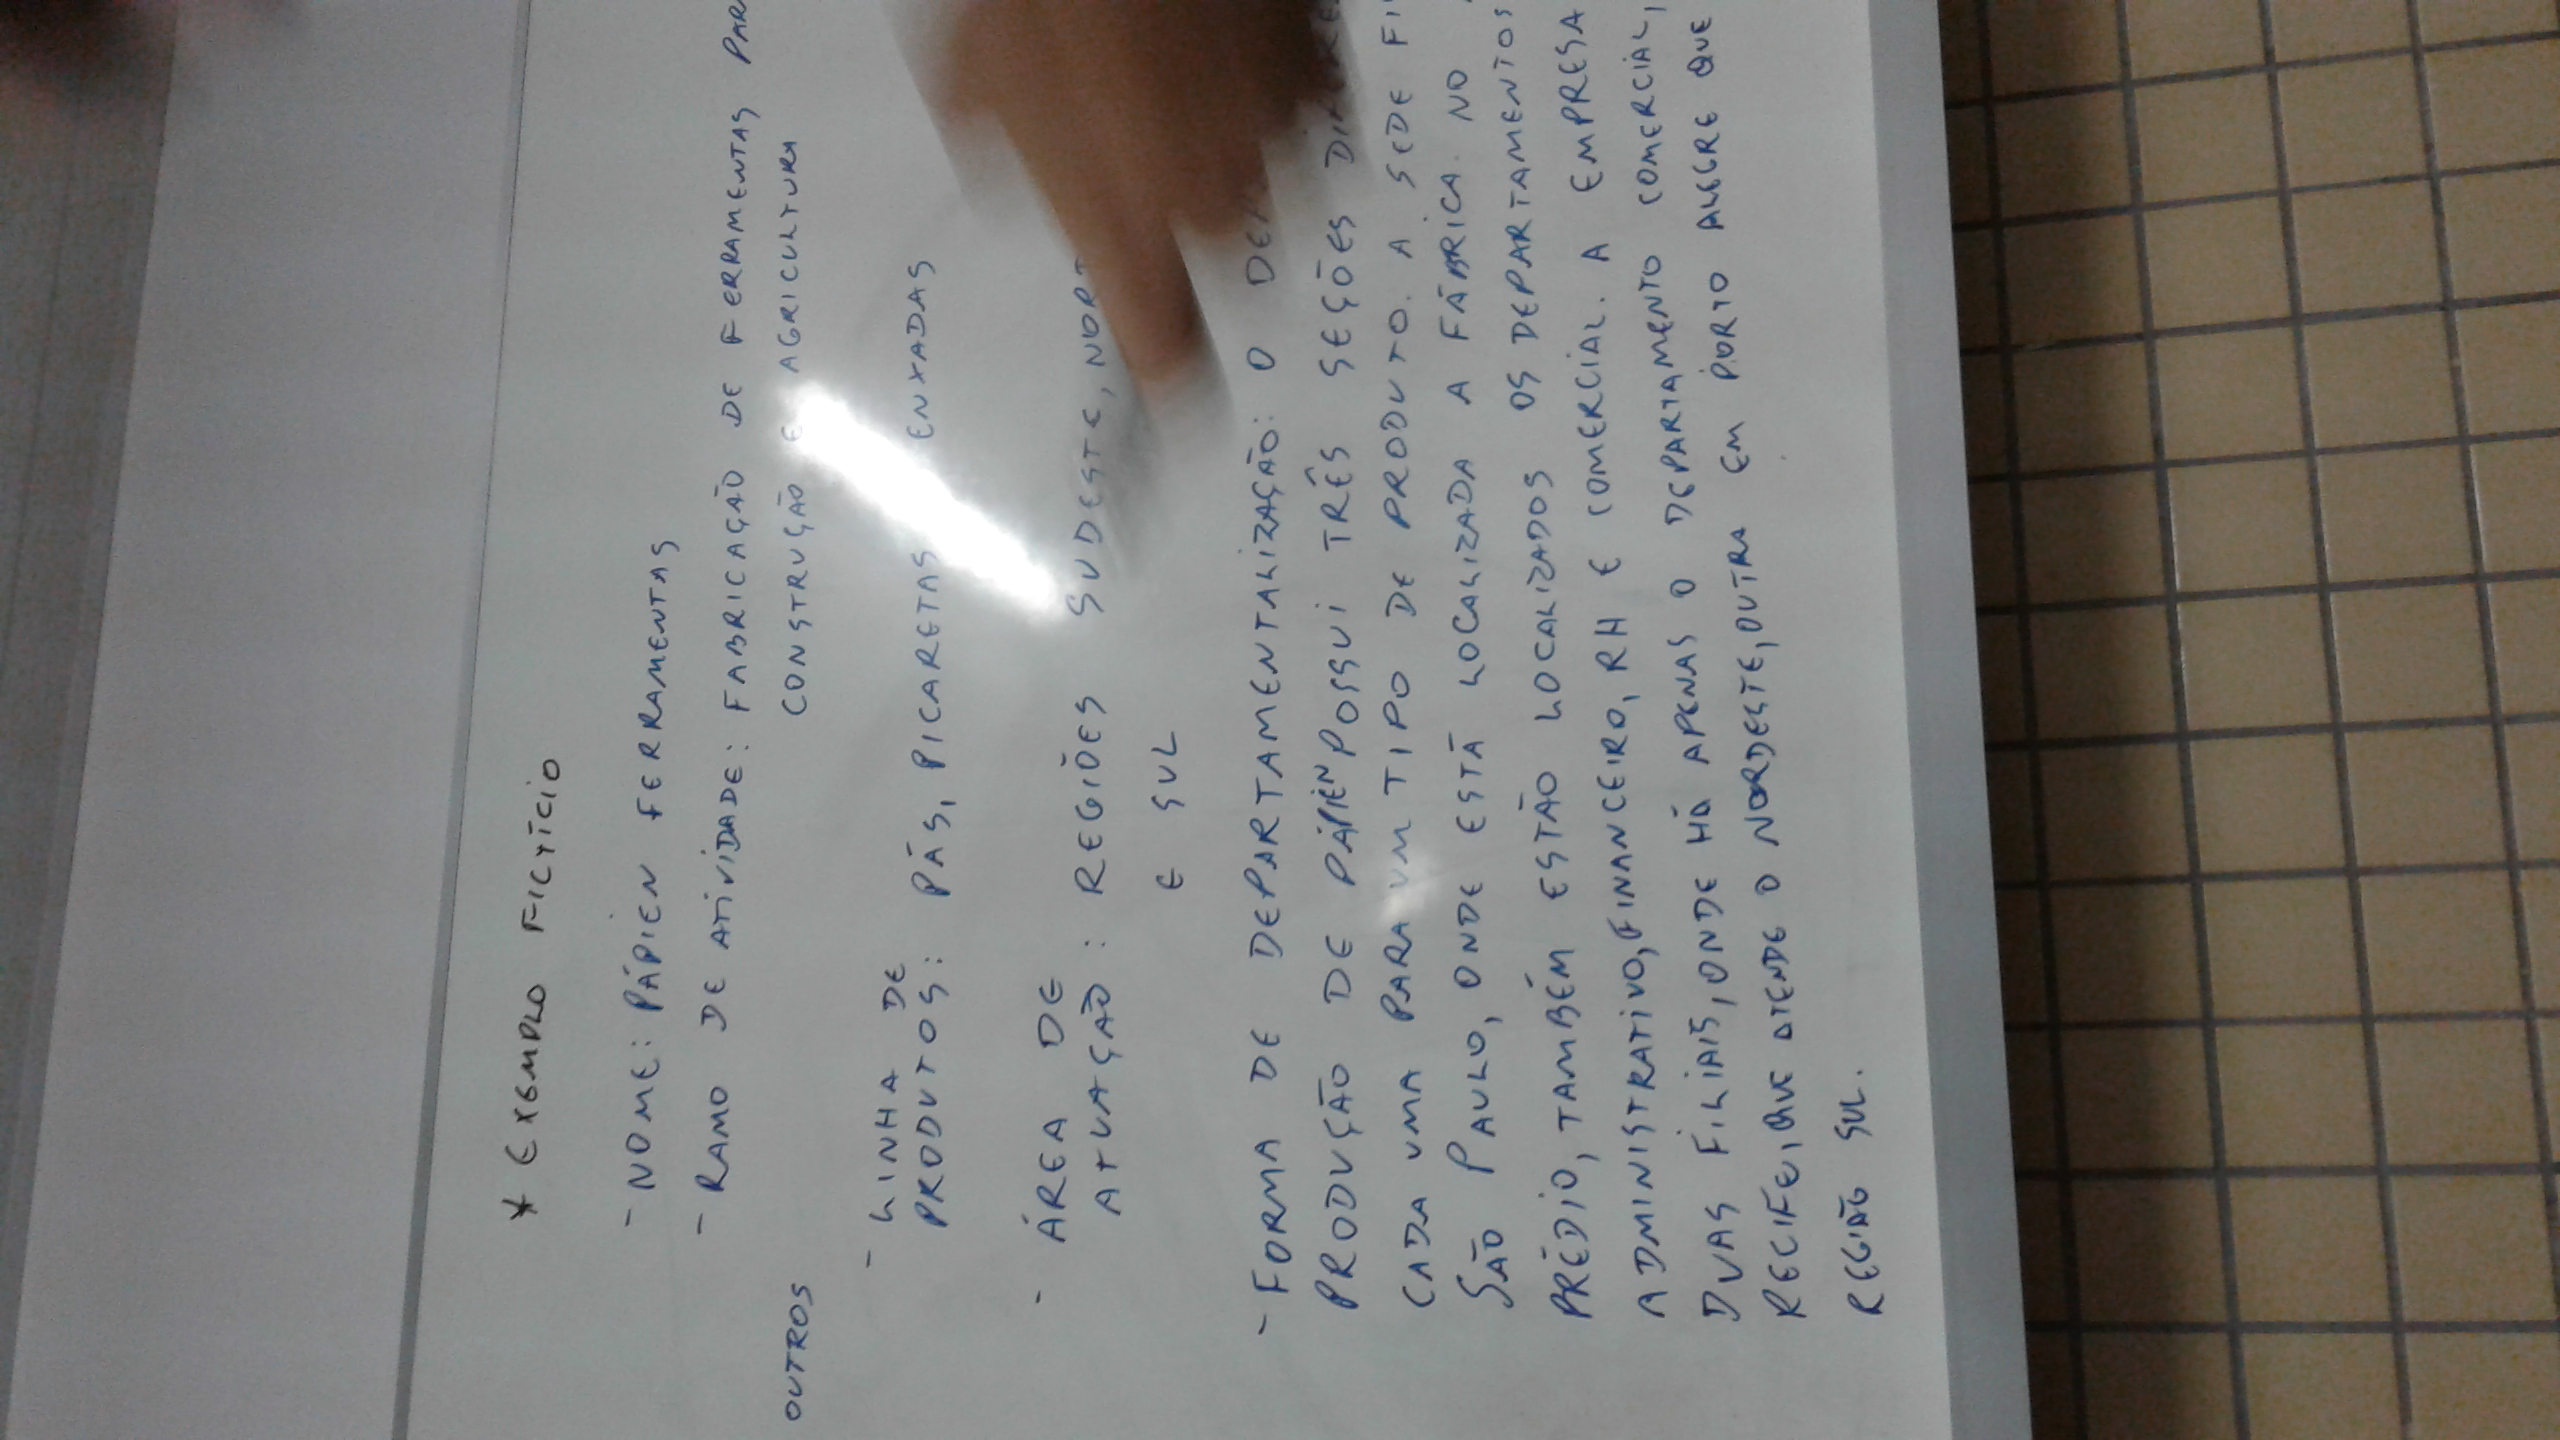 * EXEMPLO FICTÍCIO
- NOME: PÁPIEN FERRAMENTAS
- RAMO DE ATIVIDADE: FABRICAÇÃO DE FERRAMENTAS
CONSTRUÇÃO E AGRICULTURA
OUTROS
- LINHA DE
PRODUTOS: PÁS, PICARETAS ENXADAS
- ÁREA DE
ATUAÇÃO: REGIÕES SUDESTE,
E SUL
- FORMA DE DEPARTAMENTALIZAÇÃO: O
PRODUÇÃO DE PÁPIEN POSSUI TRÊS SEÇÕES
CADA UMA PARA UM TIPO DE PRODUTO. A SEDE
SÃO PAULO, ONDE ESTÁ LOCALIZADA A FÁBRICA. NO
PRÉDIO, TAMBÉM ESTÃO LOCALIZADOS OS DEPARTAMENTOS
ADMINISTRATIVO, FINANCEIRO, RH E COMERCIAL. A EMPRESA
DUAS FILIAIS, ONDE HÁ APENAS O DEPARTAMENTO COMERCIAL,
RECIFE, QUE ATENDE O NORDESTE, OUTRA EM PORTO ALEGRE QUE
REGIÃO SUL.